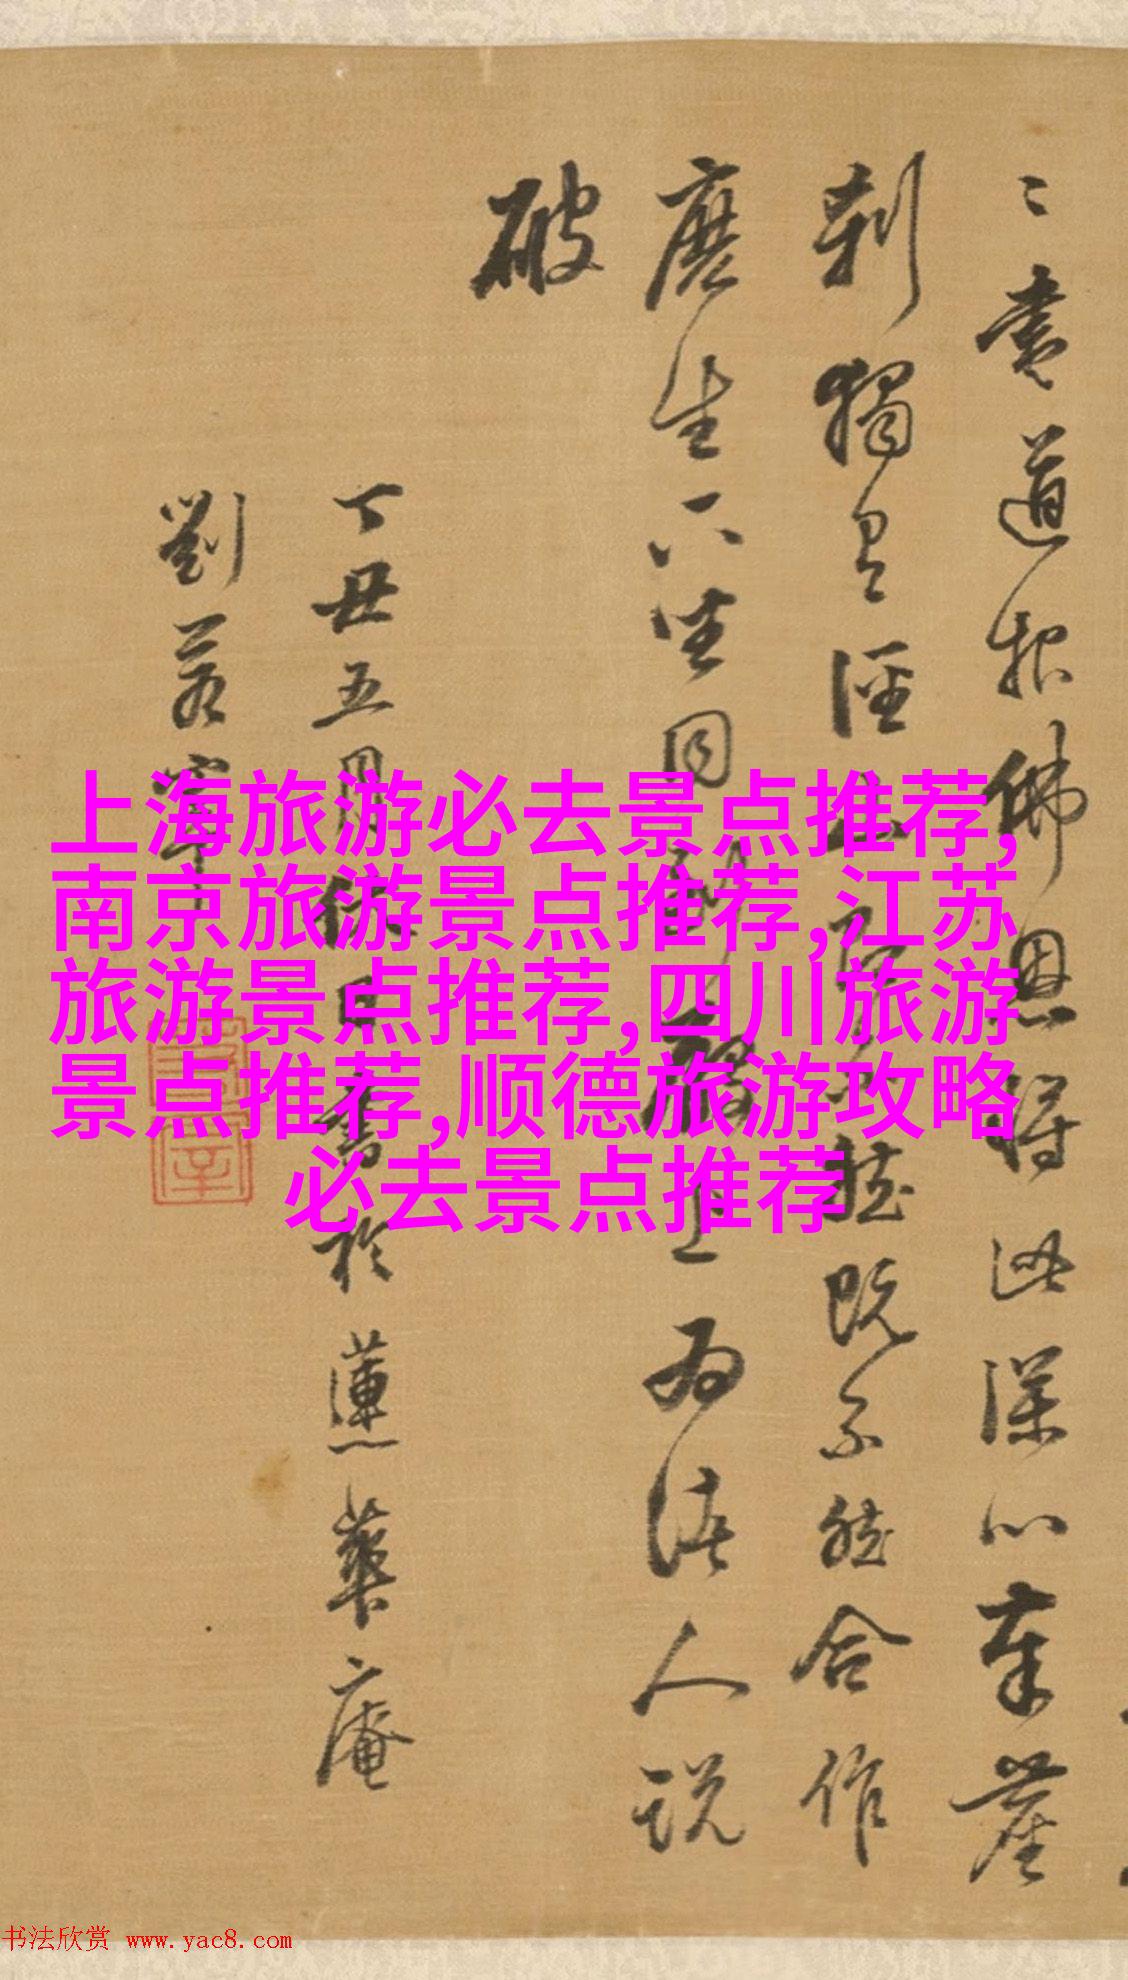 〻書道報佛恩將此深心奉塵
刹獨具涇
既不能合作
磨生不坐同
為讀人說
破
丁丑五月伏日書於蕙華庵
劉若宰
上海旅游必去景点推荐,
南京旅游景点推荐,江苏
旅游景点推荐,四川旅游
景点推荐,顺德旅游攻略
必去景点推荐
书法欣赏 www.yac8.com